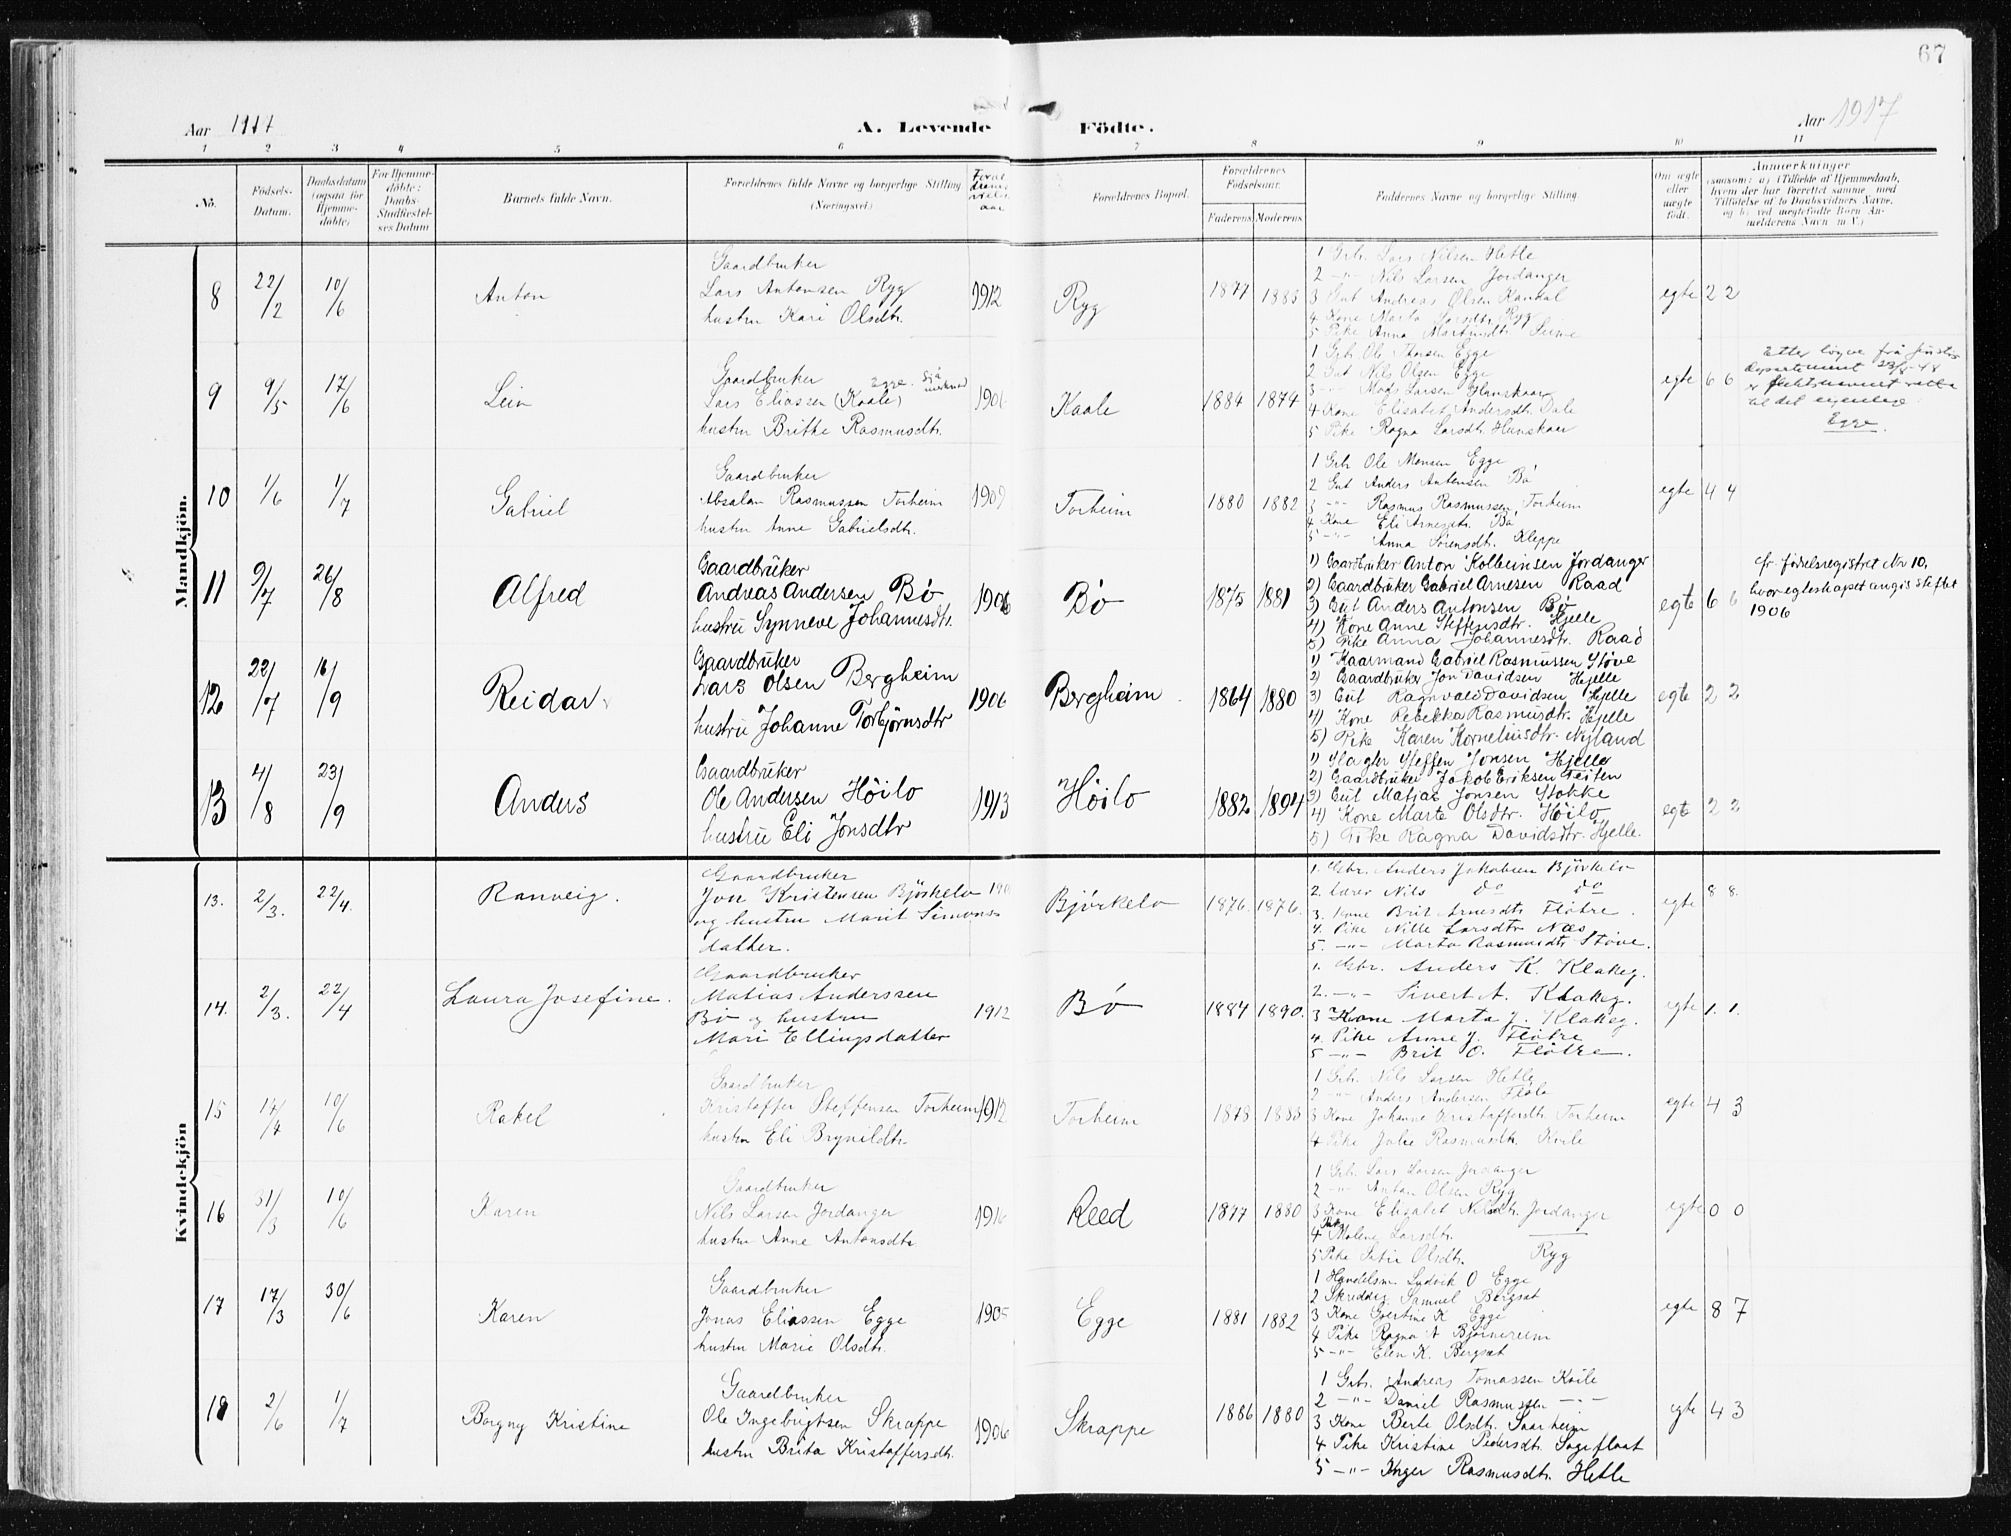 67
Aar 1917
A. Levende Födte.
Aar 1917
1 2 3 4 5 6 7 8 9 10 11
No.
Fødsels-
Datum.
Daabsdatum
(ogsaa for
Hjemme-
døbte)
For Hjemme-
døbte:
Daabs-
Stadfæstel-
ses Datum
Barnets fulde Navn.
Forældrenes fulde Navne og borgerlige Stilling
(Næringsvei.)
Forældrenes Bopæl.
Forældrenes
Fødselsaar.
Faderens Moderens
Faddernes Navne og borgerlige Stilling.
Om ægte
eller
uægte
født.
Anmærkninger
(saasom: a) i Tilfælde af Hjemmedaab,
hvem der har forrettet samme med
Tilføielse af to Daabsvidners Navne,
og b) ved uægtefødte Børn An-
melderens Navn m. V.)
Mandkjön.
8 22/2 10/6 Anton
Gaardbruker
Lars Antonsen Ryg
hustru Kari Olsdtr.
1912 Ryg 1877 1883
1 Grb. Lars Nilsen Hetle
2 -"- Nils Larsen Jordanger
3 Gut Andreas Olsen Kandal
4 Kone Marta Larsdtr. Ryg
5 Pike Anna Martinsdtr.
egte 2 2
9 9/5 17/6 Leiv
Gaardbruker
Egge. Sjå merknad
Lars Eliassen (Kaale)
hustru Brithe Rasmusdtr.
Kaale 1884 1874
1 Grb. Ole Thorsen Egge
2 Gut Nils Olsen Egge
3 -"- Mads Larsen Hanskaar
4 Kone Elisabet Andersdtr. Dale
5 Pike Ragna Larsdtr. Hanskaar
egte 6 6
Etter løyve frå Justis
Departement 23/8-48
til det
Egge.
10 1/6 1/7 Gabriel
Gaardbruker
Absalon Rasmussen Torheim
hustru Anne Gabrielsdtr.
1909 Torheim 1880 1882
1 Grb. Ole Monsen Egge
2 Gut Anders Antonsen Bø
3 -"- Rasmus Rasmussen Torheim
4 Kone Eli Arnesdtr. Bø
5 -"- Anna Sørensdtr. Kleppe
egte 4 4
11 9/7 26/8 Alfred
Gaardbruker
Andreas Andersen Bø
hustru Synneve Johannesdtr.
1906 Bø 1875 1881
1) Gaardbruker Anton Kolbeinsen Jordanger
2) Gaardbruker Gabriel Arnesen Raad
3) Gut Anders Antonsen Bø
4) Kone Anne Steffensdtr. Hjelle
5) Pike Anna Johannesdtr. Raad
egte 6 6
fr. fødselsregistret Nr 10,
hvor egteskapet angis stiftet
1906
12 22/7 16/9 Reidar
Gaardbruker
Lars Olsen Bergheim
hustru Johanne Torbjørnsdtr
1906 Bergheim 1864 1880
1) Kaarmand Gabriel Rasmussen Støve
2) Gaardbruker Jon Davidsen Hjelle
3) Gut Ragnvald Davidsen Hjelle
4) Kone Rebekka Rasmusdtr. Hjelle
5) Pike Karen Korneliusdtr. Nyland
egte 2 2
13 4/8 23/9 Anders
Gaardbruker
Ole Andersen Höilo
hustru Eli Jonsdtr
1913 Höilo 1882 1894
1) Slagter Steffen Jonsen Hjelle
2) Gaardbruker Jakob Eriksen Teiten
3) Gut Matias Jonsen Stokke
4) Kone Marte Olsdtr. Höilo
5) Pike Ragna Davidsdtr. Hjelle.
egte 2 2
Kvindekjön
13. 2/3. 22/4. Ranveig.
Gaardbruker
Jon Kristensen Bjørkelo
og hustru Marit Simons-
datter.
Bjørkelo 1876. 1876.
1. Gbr. Anders Jakobsen Bjørkelo
2. Lærer Nils do do
3. Kone Brit Arnesdtr. Fløtre.
4. Pike Nille Larsdtr. Næs
5. -"- Marta Rasmusdtr. Støve.
egte 8 8.
14. 2/3. 22/4 Laura Josefine.
Gaardbruker
Matias Anderssen
Bø og hustru
Mari Ellingsdatter
1912 Bø 1884 1890.
1. Gbr. Anders K. Klakeg.
2. -"- Sivert A. Klakeg.
3 Kone Marta J. Klakeg.
4. Pike Anne J. Fløtre
5 -"- Brit O. Fløtre.
egte 1. 1.
15 14/4 10/6 Rakel
Gaardbruker
Kristoffer Steffensen Torheim
hustru Eli Brynildtr.
1912 Torheim 1878 1883
1 Grb. Nils Larsen Hetle
2 -"- Anders Andersen Fløla
3 Kone Johanne Kristoffersdtr. Torheim
4 Pike Julie Rasmusdtr. Kvile
egte 4 3
16 31/3 10/6 Karen
Gaardbruker
Nils Larsen Jordanger
hustru Anne Antonsdtr.
1916 Reed 1877 1880
1 Grb. Lars Larsen Jordanger
2 -"- Anton Olsen Ryg
3 Kone Elisabet Nilsdtr. Jordanger
4 Pike Malene Larsdtr. ——
5 Pike Olsdtr. Ryg
egte 0 0
17 17/3 30/6 Karen
Gaardbruker
Jonas Eliassen Egge
hustru Marie Olsdtr.
1905 Egge 1881 1882
1 Handelsm. Ludvik O Egge
2 Skredder Samuel Bergset
3 Kone Severtine K Egge
4 Pike Ragna A Bjørnereim
5 -"- Elen K. Bergset
egte 8 7
18 2/6 1/7 Borgny Kristine
Gaardbruker
Ole Ingebrigtsen Skrappe
hustru Brita Kristoffersdtr.
1906 Skrappe 1886 1880
1 Grb. Andreas Tomassen Kvile
2 -"- Daniel Rasmussen -"-
3 Kone Berte Olsdtr. Saarheim
4 Pike Kristine Pedersdtr. Sageflaat
5 -"- Inger Rasmusdtr. Hetle
egte 4 3